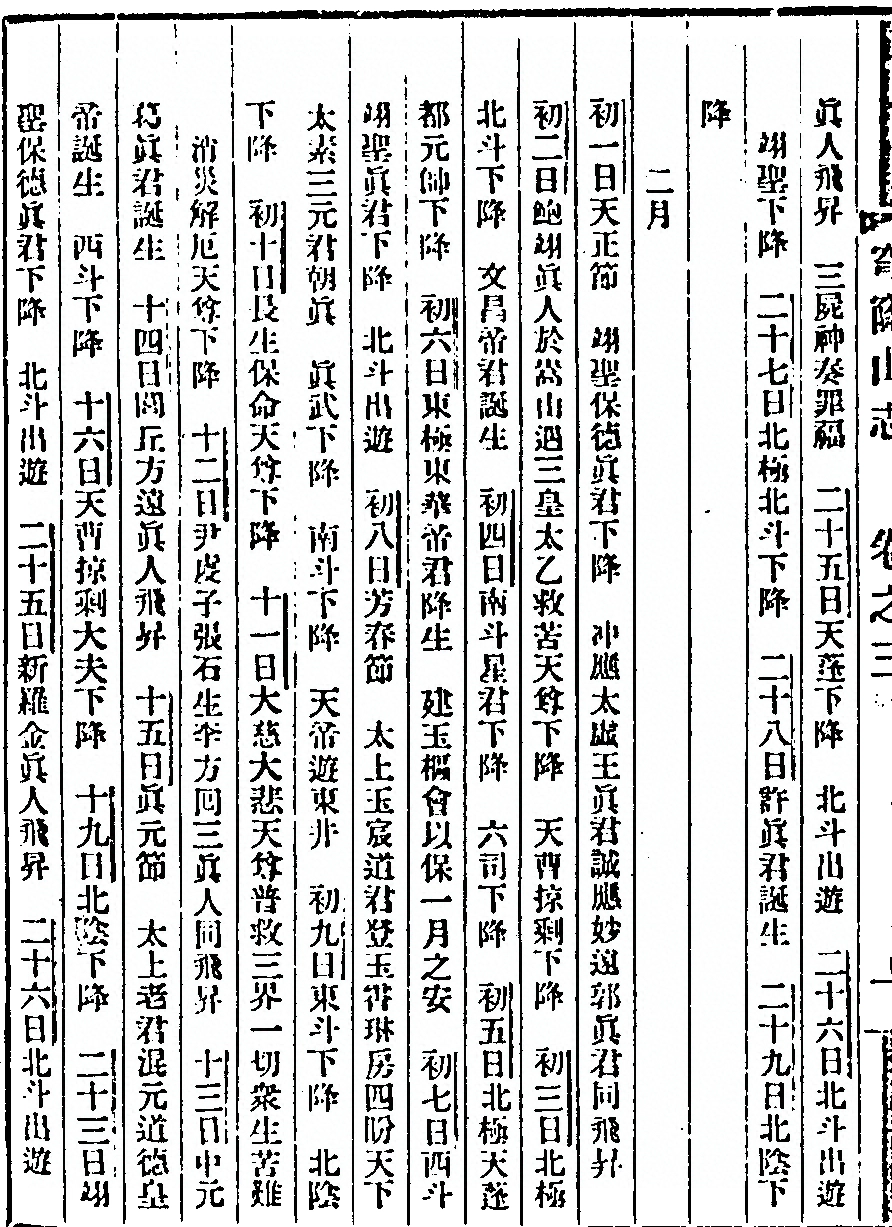 窄險山志　卷之三　一
眞人飛昇　三屍神奏罪福　二十五日天蓬下降　北斗出遊　二十六日北斗出遊
翊聖下降　二十七日北極北斗下降　二十八日許眞君誕生　二十九日北陰下
降
二月
初一日天正節　翊聖保德眞君下降　冲應太虛王眞君誠應妙遠郭眞君同飛昇
初二日鮑翊眞人於嵩山遇三皇太乙救苦天尊下降　天曹掠剩下降　初三日北極
北斗下降　文昌帝君誕生　初四日南斗星君下降　六司下降　初五日北極天蓬
都元帥下降　初六日東極東華帝君降生　建玉樞會以保一月之安　初七日西斗
翊聖眞君下降　北斗出遊　初八日芳春節　太上玉宸道君登玉霄琳房四盼天下
太素三元君朝眞　眞武下降　南斗下降　天帝遊東井　初九日東斗下降　北陰
下降　初十日長生保命天尊下降　十一日大慈大悲天尊普救三界一切衆生苦難
消災解厄天尊下降　十二日尹虔子張石生李方回三眞人同飛昇　十三日中元
葛眞君誕生　十四日閭丘方遠眞人飛昇　十五日眞元節　太上老君混元道德皇
帝誕生　西斗下降　十六日天曹掠剩大夫下降　十九日北陰下降　二十三日翊
聖保德眞君下降　北斗出遊　二十五日新羅金眞人飛昇　二十六日北斗出遊